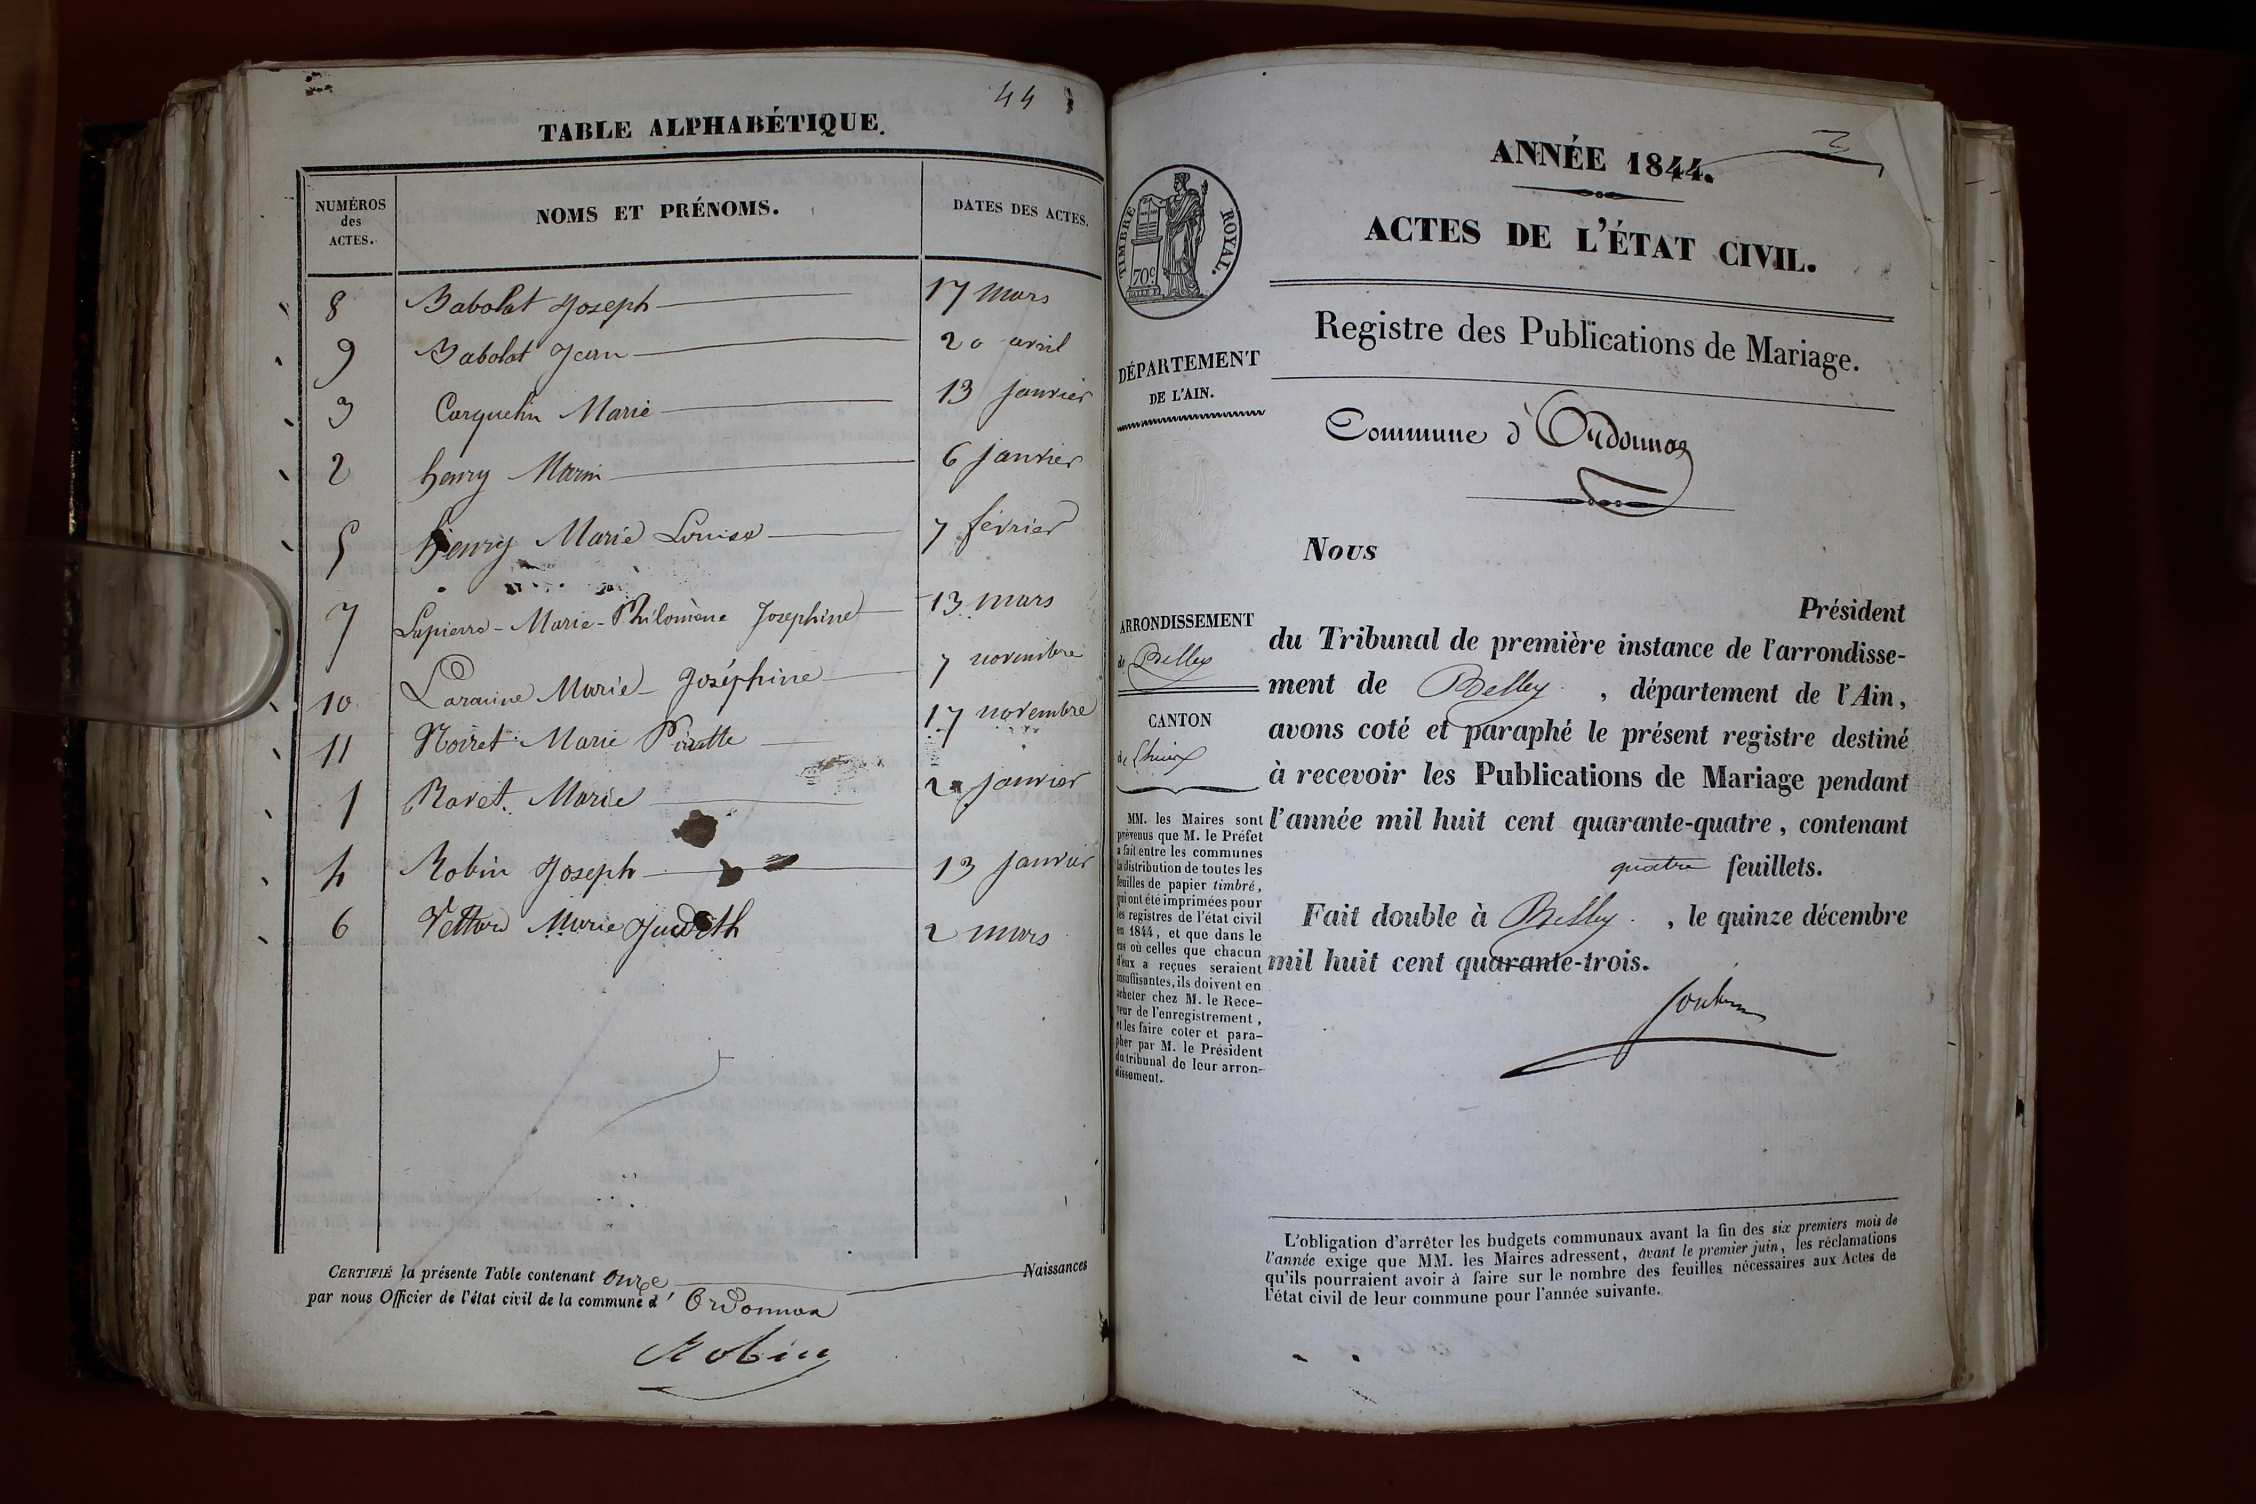 44
TABLE ALPHABÉTIQUE.
NUMÉROS des ACTES. NOMS ET PRÉNOMS. DATES DES ACTES.
8 Babolat Joseph 17 mars
9 Babolat Jean 20 avril
3 Carquelin Marie 13 janvier
2 henry Marie 6 janvier
5 henry Marie Louise 7 février
7 Lapierre - Marie - Philomène Josephine 13 mars
10 Laraine Marie Joséphine 7 novembre
11 Noiret Marie 17 novembre
1 Ravet Marie 2 janvier
4 Robin Joseph 13 janvier
6 Vettard Marie Judith 2 mars
CERTIFIÉ la présente Table contenant onze Naissances
par nous Officier de l'état civil de la commune d' Ordonnaz
Robin
2
ANNÉE 1844.
ACTES DE L'ÉTAT CIVIL.
TIMBRE ROYAL.
70c
Registre des Publications de Mariage.
DÉPARTEMENT
DE L'AIN.
Commune d'Ordonnaz
Nous
Président
ARRONDISSEMENT
de Belley
CANTON
de Lhuix
du Tribunal de première instance de l'arrondisse-
ment de Belley, département de l'Ain,
avons coté et paraphé le présent registre destiné
à recevoir les Publications de Mariage pendant
l'année mil huit cent quarante-quatre, contenant
quatre feuillets.
Fait double à Belley, le quinze décembre
mil huit cent quarante-trois.
MM. les Maires sont
prévenus que M. le Préfet
a fait entre les communes
la distribution de toutes les
feuilles de papier timbré,
qui ont été imprimées pour
les registres de l'état civil
en 1844, et que dans le
cas où celles que chacun
d'eux a reçues seraient
insuffisantes, ils doivent en
acheter chez M. le Rece-
veur de l'enregistrement,
et les faire coter et para-
pher par M. le Président
du tribunal de leur arron-
dissement.
L'obligation d'arrêter les budgets communaux avant la fin des six premiers mois de
l'année exige que MM. les Maires adressent, avant le premier juin, les réclamations
qu'ils pourraient avoir à faire sur le nombre des feuilles nécessaires aux Actes de
l'état civil de leur commune pour l'année suivante.